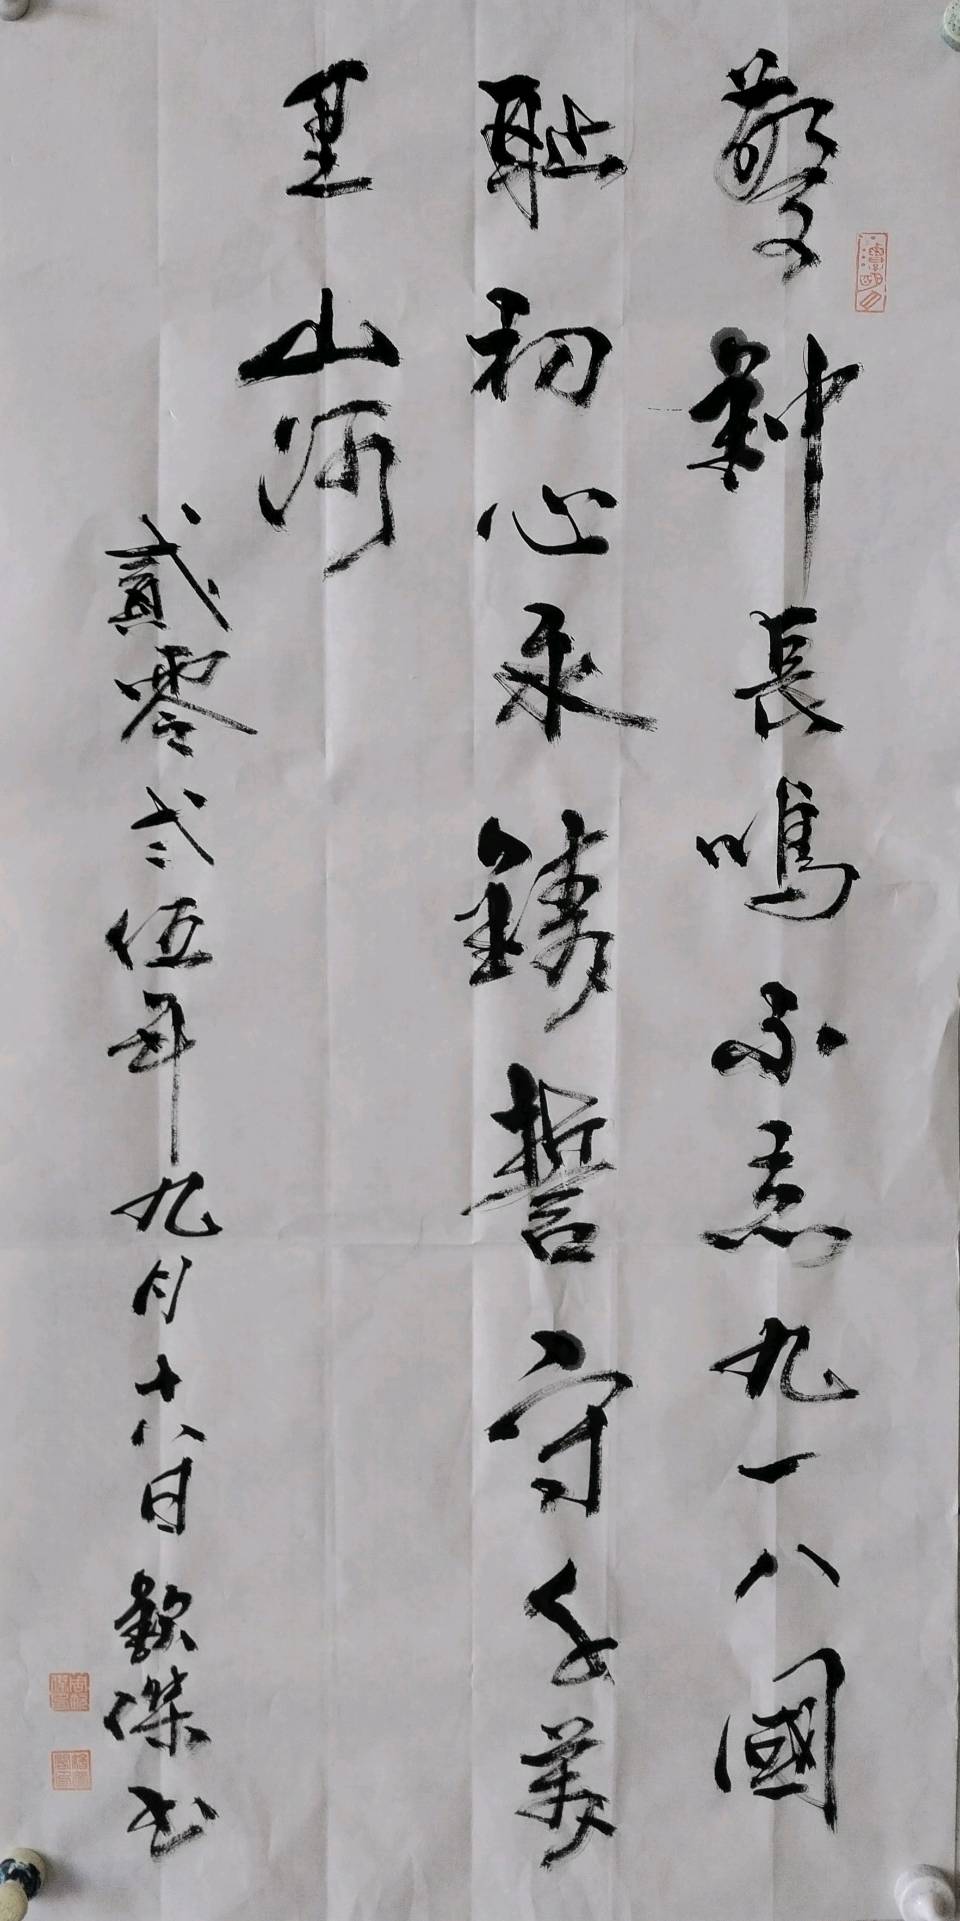 警钟長鳴不忘九一八國
耻初心永鑄誓守千萬
里山河
貳零弍伍年九月十八日欽傑书